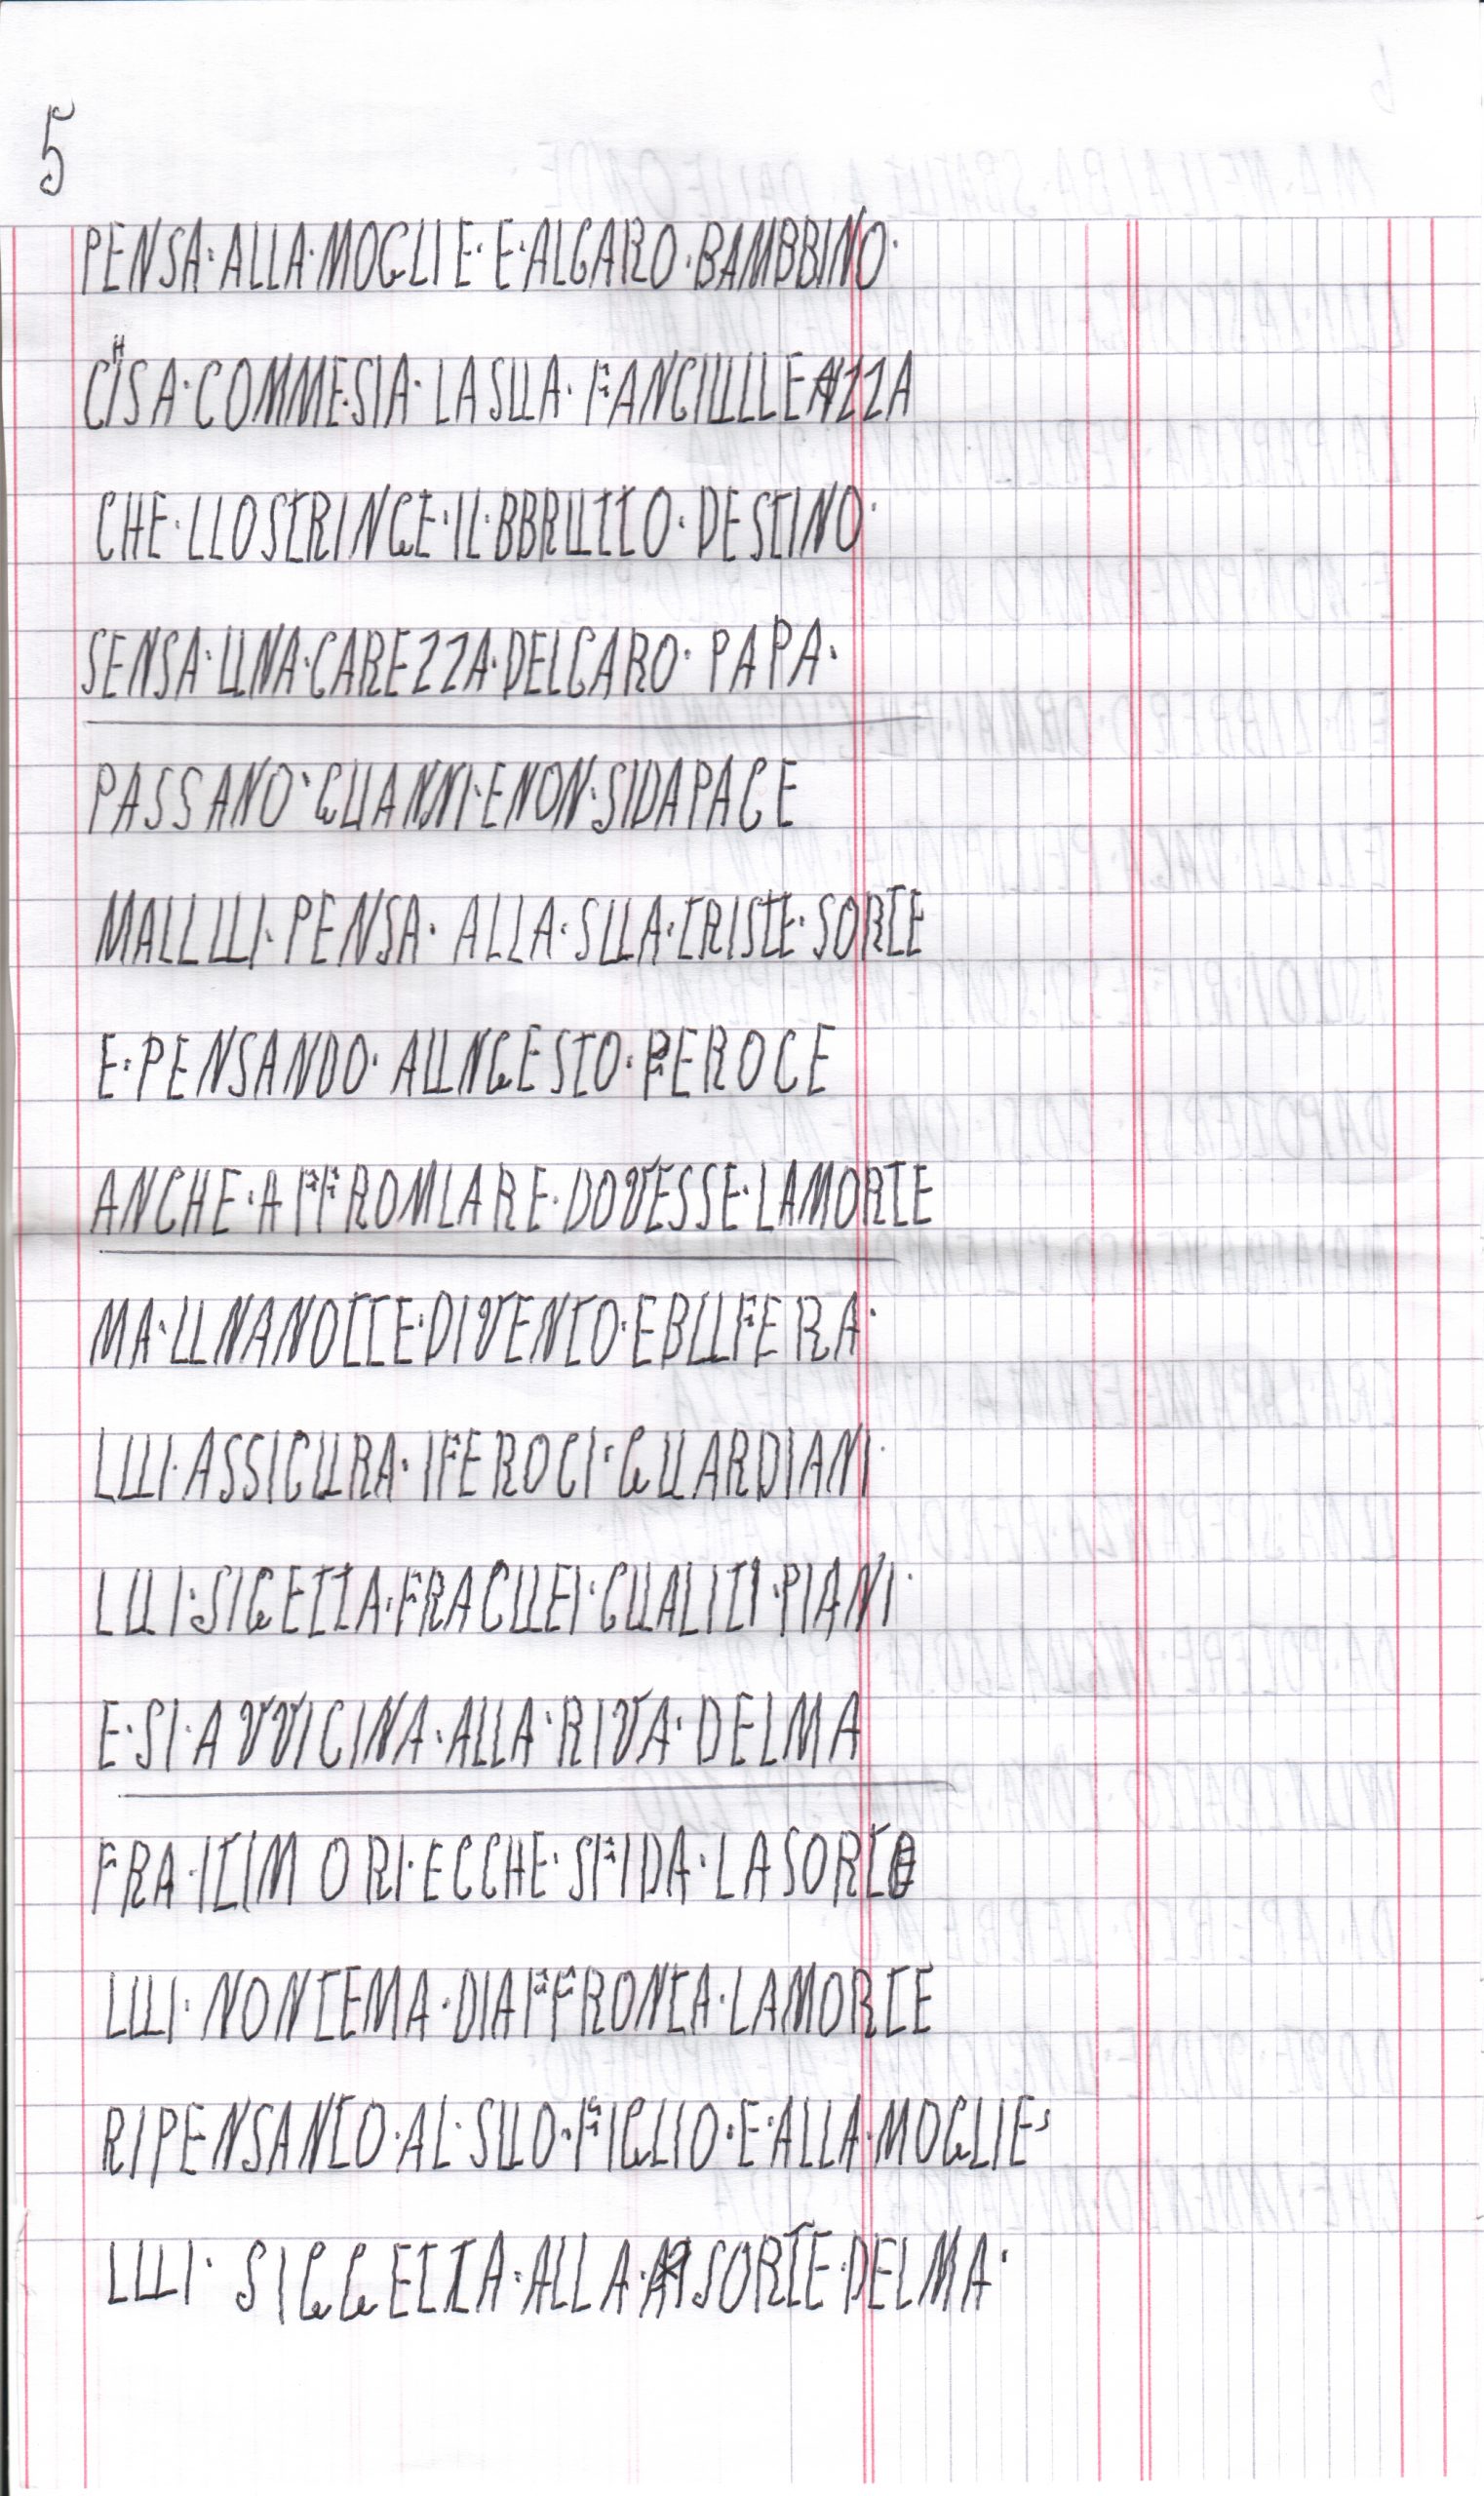 5
PENSA·ALLA·MOGLIE·E·ALCARO·BAMBBINO·
CHISA·COMMESIA·LASUA·FANCIULLEZZA
CHE·LLOSTRINGE·IL·BBRUTTO·DESTINO·
SENSA·UNA·CAREZZA·DELCARO·PAPA·
PASSANO·GLIANNI·ENON·SIDAPACE
MALLUI·PENSA·ALLA·SUA·TRISTE·SORTE
E·PENSANDO·AUNGESTO·FEROCE
ANCHE·AFFRONTARE·DOVESSE·LAMORTE
MA·UNANOTTE·DIVENTO·EBUFERA·
LUI·ASSICURA·IFEROCI·GUARDIANI·
LUI·SIGETTA·FRACUEI·CUALITI·PIANI·
E·SI·AVVICINA·ALLA·RIVA·DELMA
FRA·ITIMORI·ECCHE·SFIDA·LASORTE
LUI·NONTEMA·DIAFFRONTA·LAMORTE
RIPENSANTO·AL·SUO·FIGLIO·E·ALLA·MOGLIE·
LUI·SIGGETTA·ALLA·SORTE·DELMA·